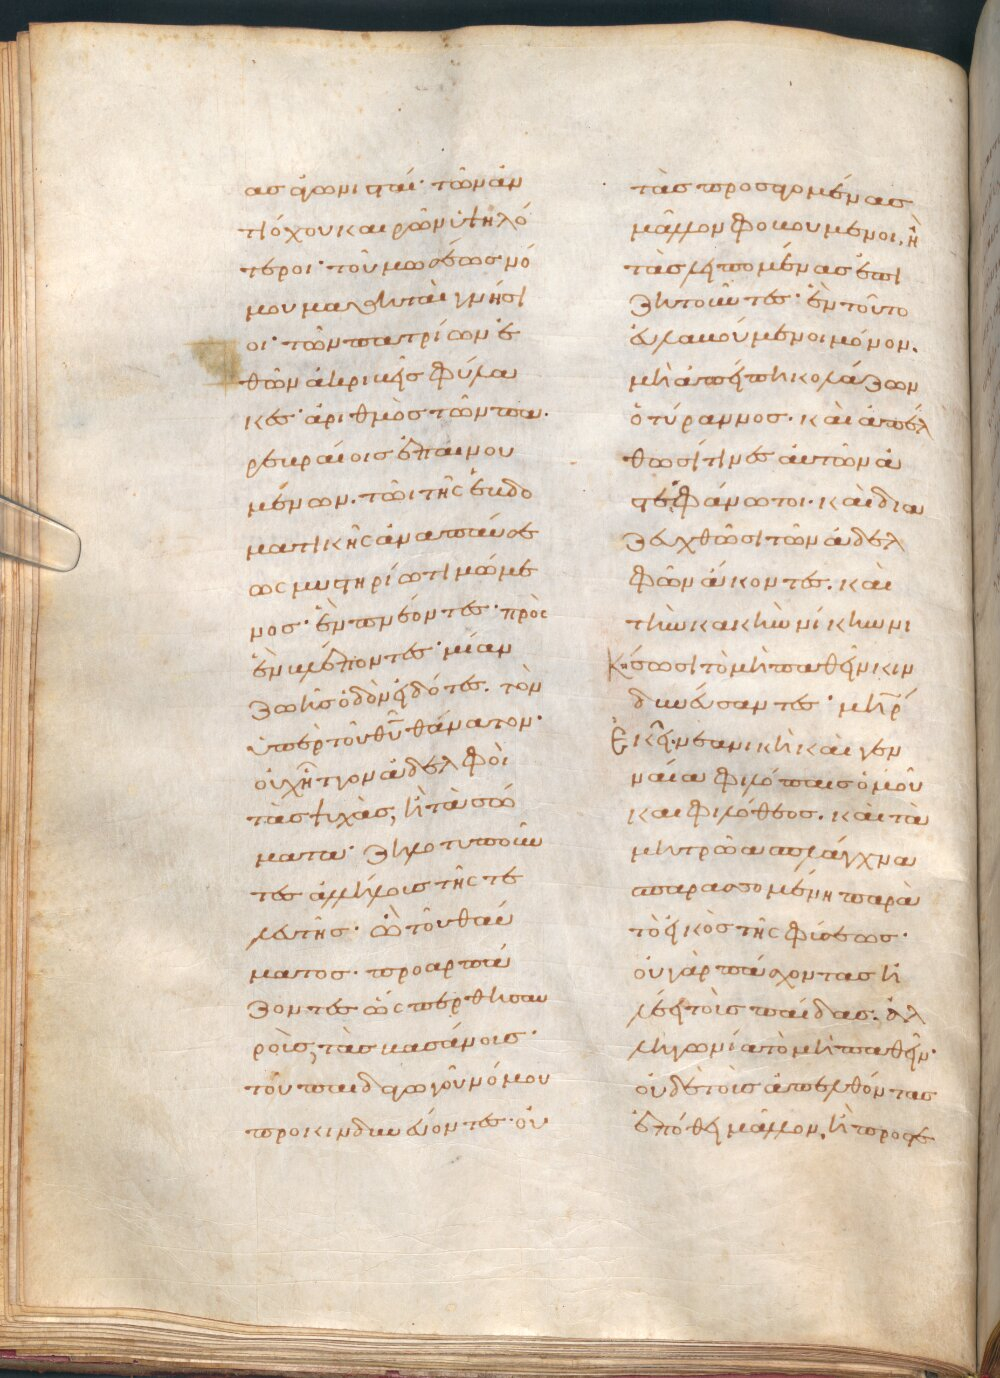 ας ἀγωνισταί· τῶν ἀν
τιόχου καιρῶν ὑψηλό
τεροι· τοῦ μωσέως νό
μου μαθηταὶ γνήσι
οι· τῶν πατρίων ἐ
θῶν ἀκριβεῖς φύλα
κες· ἀριθμὸς τῶν παρ
εβραίοις ἐπαινου
μένων. τῶι τῆς ἑβδο
ματικῆς ἀναπαύσε
ως μυστηρίω τιμώμε
νος· ἓν πνέοντες· πρὸς
ἓν βλέποντες· μίαν
ζωῆς ὁδὸν εἰδότες. τὸν
ὑπὲρ τοῦ θῦ θάνατον·
οὐχ ἧττον ἀδελφοὶ
τὰς ψυχὰς, ἢ τὰ σώ
ματα· ζηλοτυποῦν
τες ἀλλήλοις τῆς τε
λευτῆς· ὢ τοῦ θαύ
ματος· προαρπά
ζοντες ὥςπερ θησαυ
ροὺς, τὰς βασάνους·
τοῦ παιδαγωγοῦ νόμου
προκινδυνεύοντες· οὐ
τὰς προσαγομένας
μᾶλλον φοβουμενοι, ἢ
τὰς λειπομένας ἐπι
ζητοῦντες· ἓν τοῦτο
εὐλαβούμενοι μόνον.
μὴ ἀπείπη κολάζων
ὁ τύραννος. καὶ ἀπέλ
θωσί τινες αὐτῶν ἀ
στεφάνωτοι. καὶ δια
ζευχθῶσι τῶν ἀδελ
φῶν ἄκοντες. καὶ
τὴν κακὴν νίκην νι
κήσωσι τὸ μὴ παθεῖν κιν
δυνεύσαντες· μηρ
ἐκεῖ νεανικὴ καὶ γεν
ναία φιλόπαις ὁμοῦ
και φιλόθεος. καὶ τὰ
μητρῶα σπλάγχνα
σπαρασσομένη παρὰ
τὸ εἰκὸς τῆς φύσεως·
οὐ γὰρ πάσχοντας ἠ
λέει τοὺς παίδας. ἀλλ
ἠγωνία τὸ μὴ παθεῖν·
οὐδὲ τοὺς ἀπελθόντας
ἐπόθει μᾶλλον, ἢ προσε